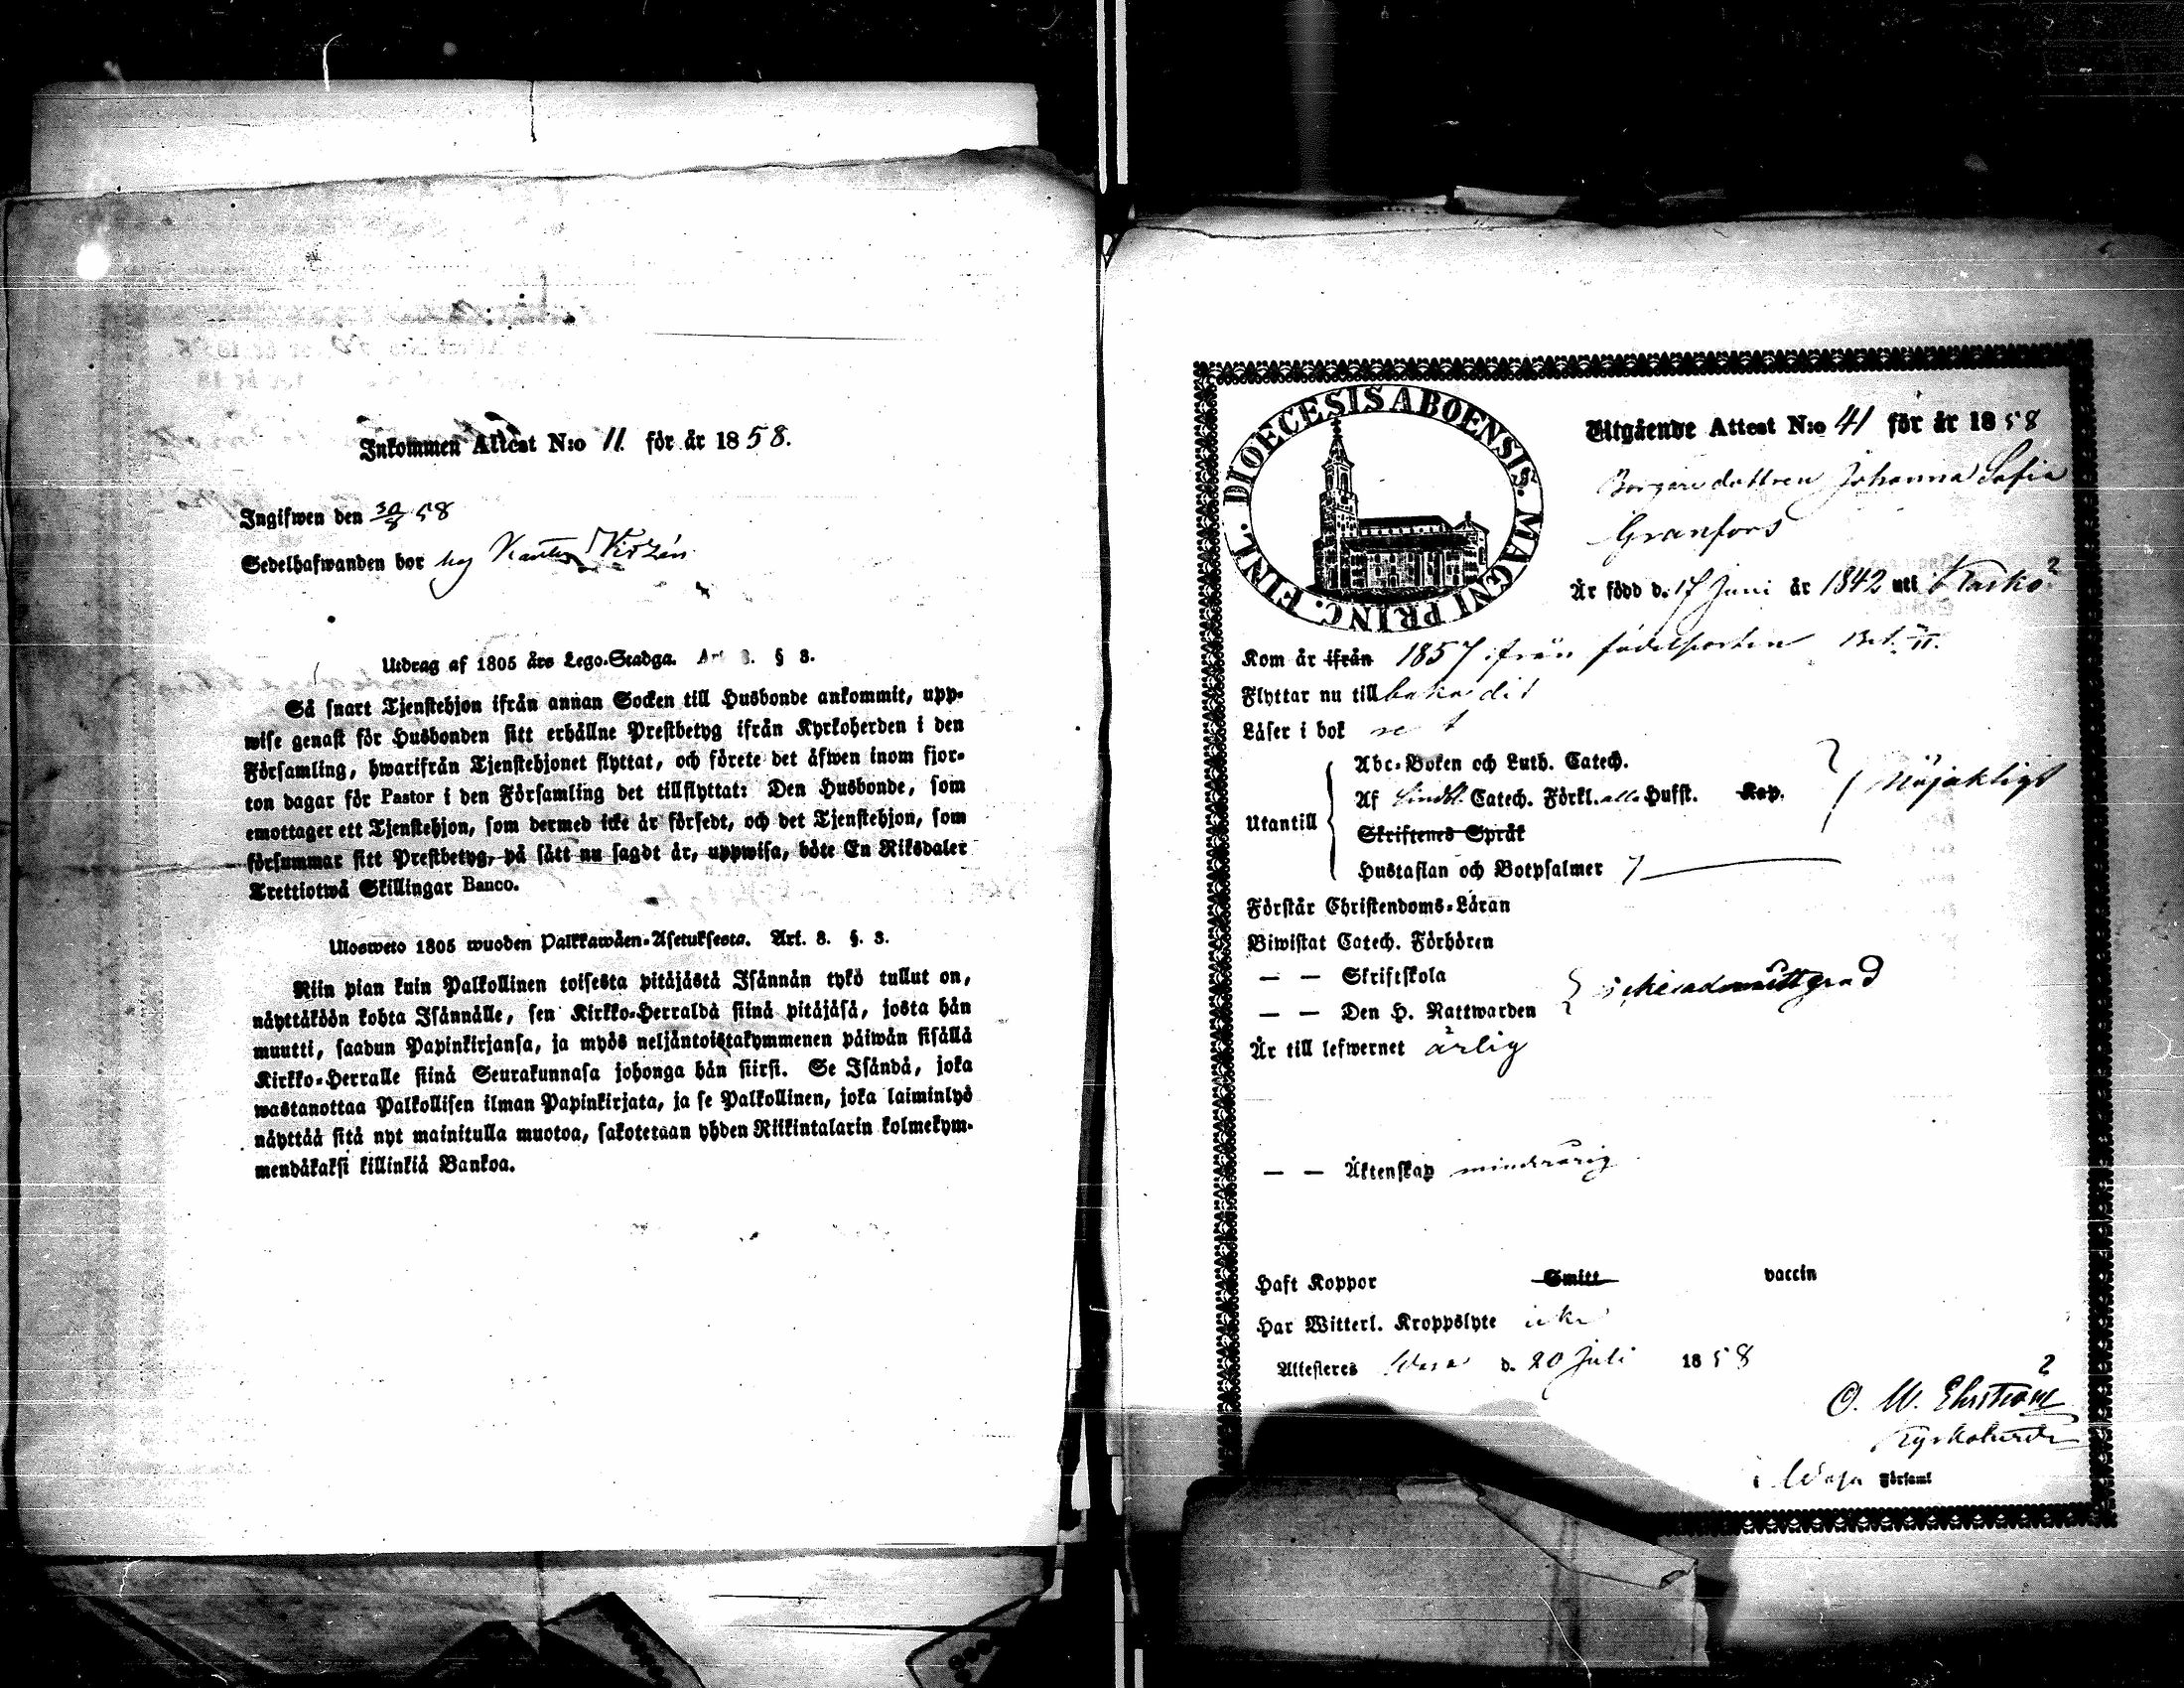 Inkommen Attest N:o 11 för år 1858.
Ingifwen den 30/8 58
Sedelhafwanden bor hos
Utdrag af 1805 års Lego-Stadga. Art 8. § 3.
Så snart Tjenstehjon ifrån annan Socken till Husbonde ankommit, upp-
wise genast för Husbonden sitt erhållne Prestbetyg ifrån Kyrkoherden i den
Församling, hwarifrån Tjenstehjonet flyttat, och förete det äfwen inom fjor-
ton dagar för Pastor i den Församling det tillflyttat: Den Husbonde, som
emottager ett Tjenstehjon, som dermed icke är försedt, och det Tjenstehjon, som
försummar sitt Prestbetyg, på sätt nu sagdt är, uppwisa, böte En Riksdaler
Trettiotwå Skillingar Banco.
Ulosweto 1805 wuoden Palkkawäen-Asetuksesta. Art. 8. §. 3.
Niin pian kuin Palkollinen toisesta pitäjästä Isännän tykö tullut on,
näyttäköön kohta Isännälle, sen Kirkko-Herralda siinä pitäjäsä, josta hän
muutti, saadun Papinkirjansa, ja myös neljäntoistakymmenen päiwän sisällä
Kirkko-Herralle siinä Seurakunnasa johonga hän siirsi. Se Isändä, joka
wastanottaa Palkollisen ilman Papinkirjata, ja se Palkollinen, joka laiminlyö
näyttää sitä nyt mainitulla muotoa, sakotetaan yhden Riikintalarin kolmekym-
mendäkaksi killinkiä Bankoa.
DIOECESIS ABOENSIS. MAGNI PRINC. FINL.
Utgående Attest N:o 41 för år 1858
Borgaredottren Johanna Sofia
Granfors
Är född d. 17 Juni år 1842 uti Kaskö
Kom år ifrån 1857 ifrån födelseorten Bet. 11.
Flyttar nu tillbaka dit
Läser i bok
Abc-Boken och Luth. Catech.
Af Catech. Förkl. Husst. Kap.
Nöjaktligt
Utantill
Skriftenes Språk
Hustaflan och Botpsalmer
Förstår Christendoms-Läran
Biwistat Catech. Förhören
— — Skriftskola
— — Den H. Nattwarden
Är till lefwernet ärlig
— — Äktenskap minderårig
Haft Koppor Smitt vaccin
Har Witterl. Kroppslyte icke
Attesteras Wasa d. 20 Juli 1858
O. W. Ehrström
Kyrkoherde
i Wasa Församl